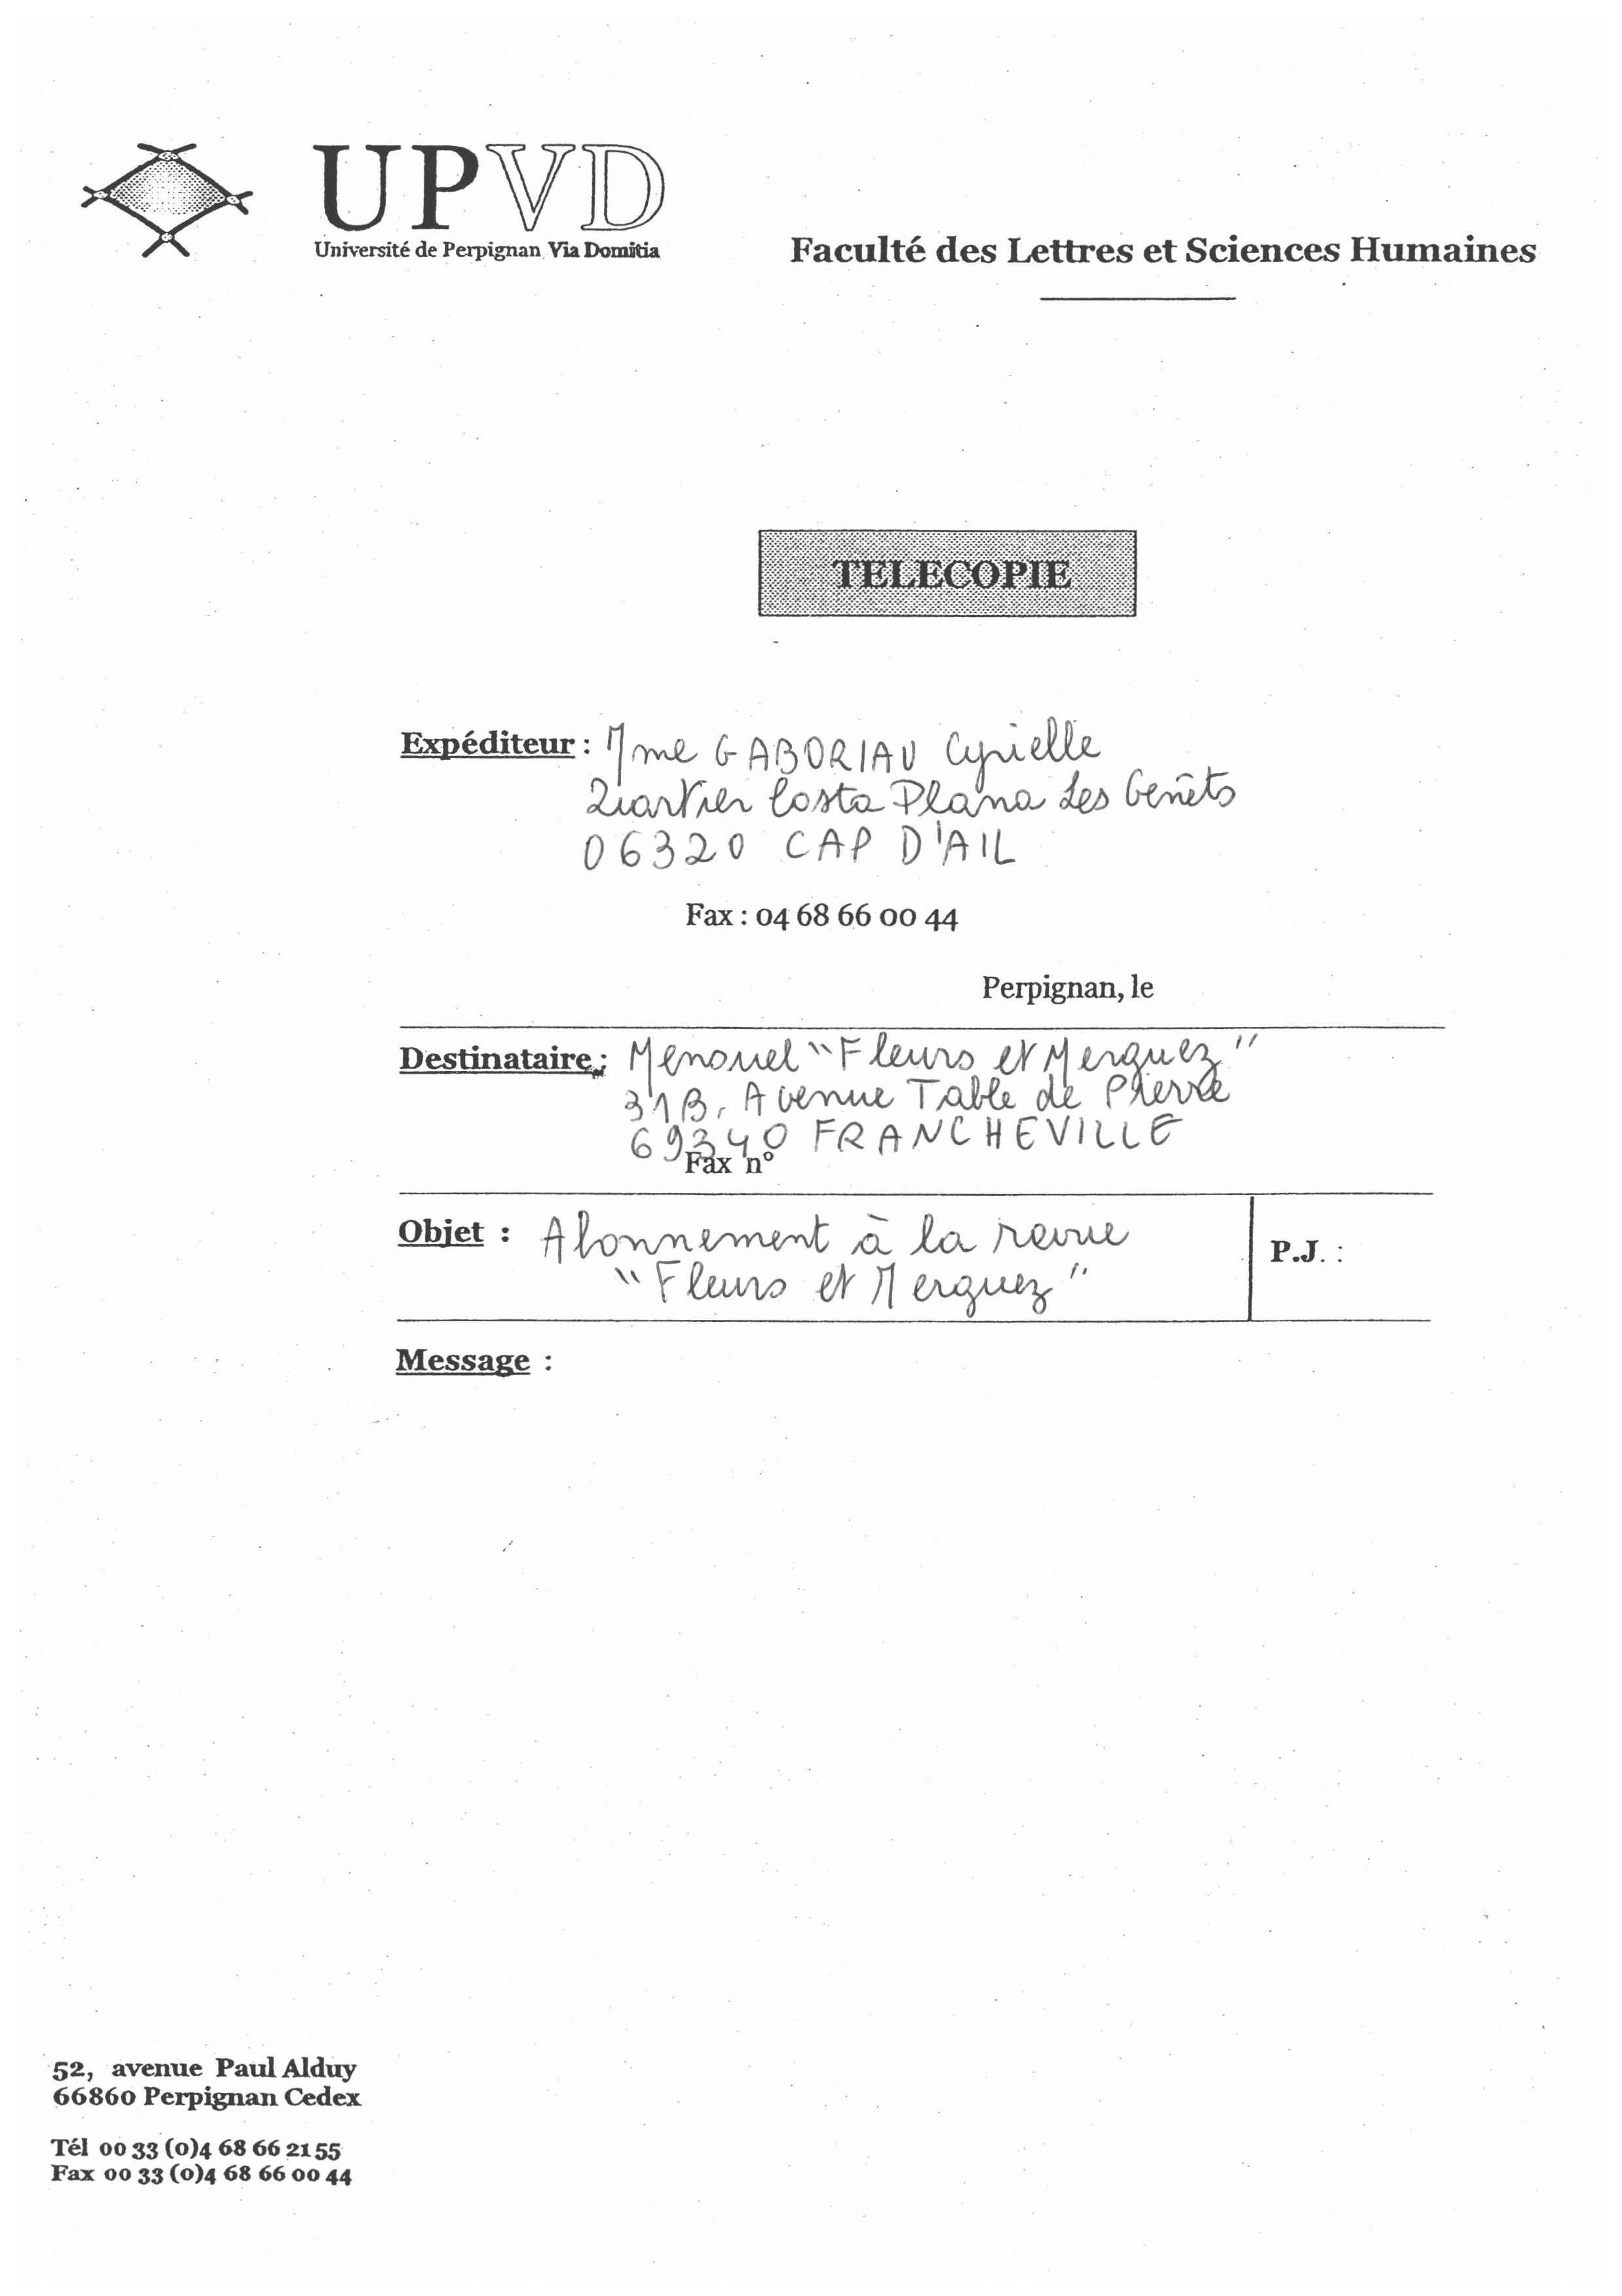 UPVD
Université de Perpignan Via Domitia
Faculté des Lettres et Sciences Humaines
TELECOPIE
Expéditeur : Mme GABORIAU Cyrielle
Quartier Costa Plana Les Genêts
06320 CAP D'AIL
Fax : 04 68 66 00 44
Perpignan, le
Destinataire : Mensuel "Fleurs et Merguez"
31B, Avenue Table de Pierre
69340 FRANCHEVILLE
Fax n°
Objet : Abonnement à la revue
"Fleurs et Merguez"
P.J. :
Message :
52, avenue Paul Alduy
66860 Perpignan Cedex
Tél 00 33 (0)4 68 66 21 55
Fax 00 33 (0)4 68 66 00 44